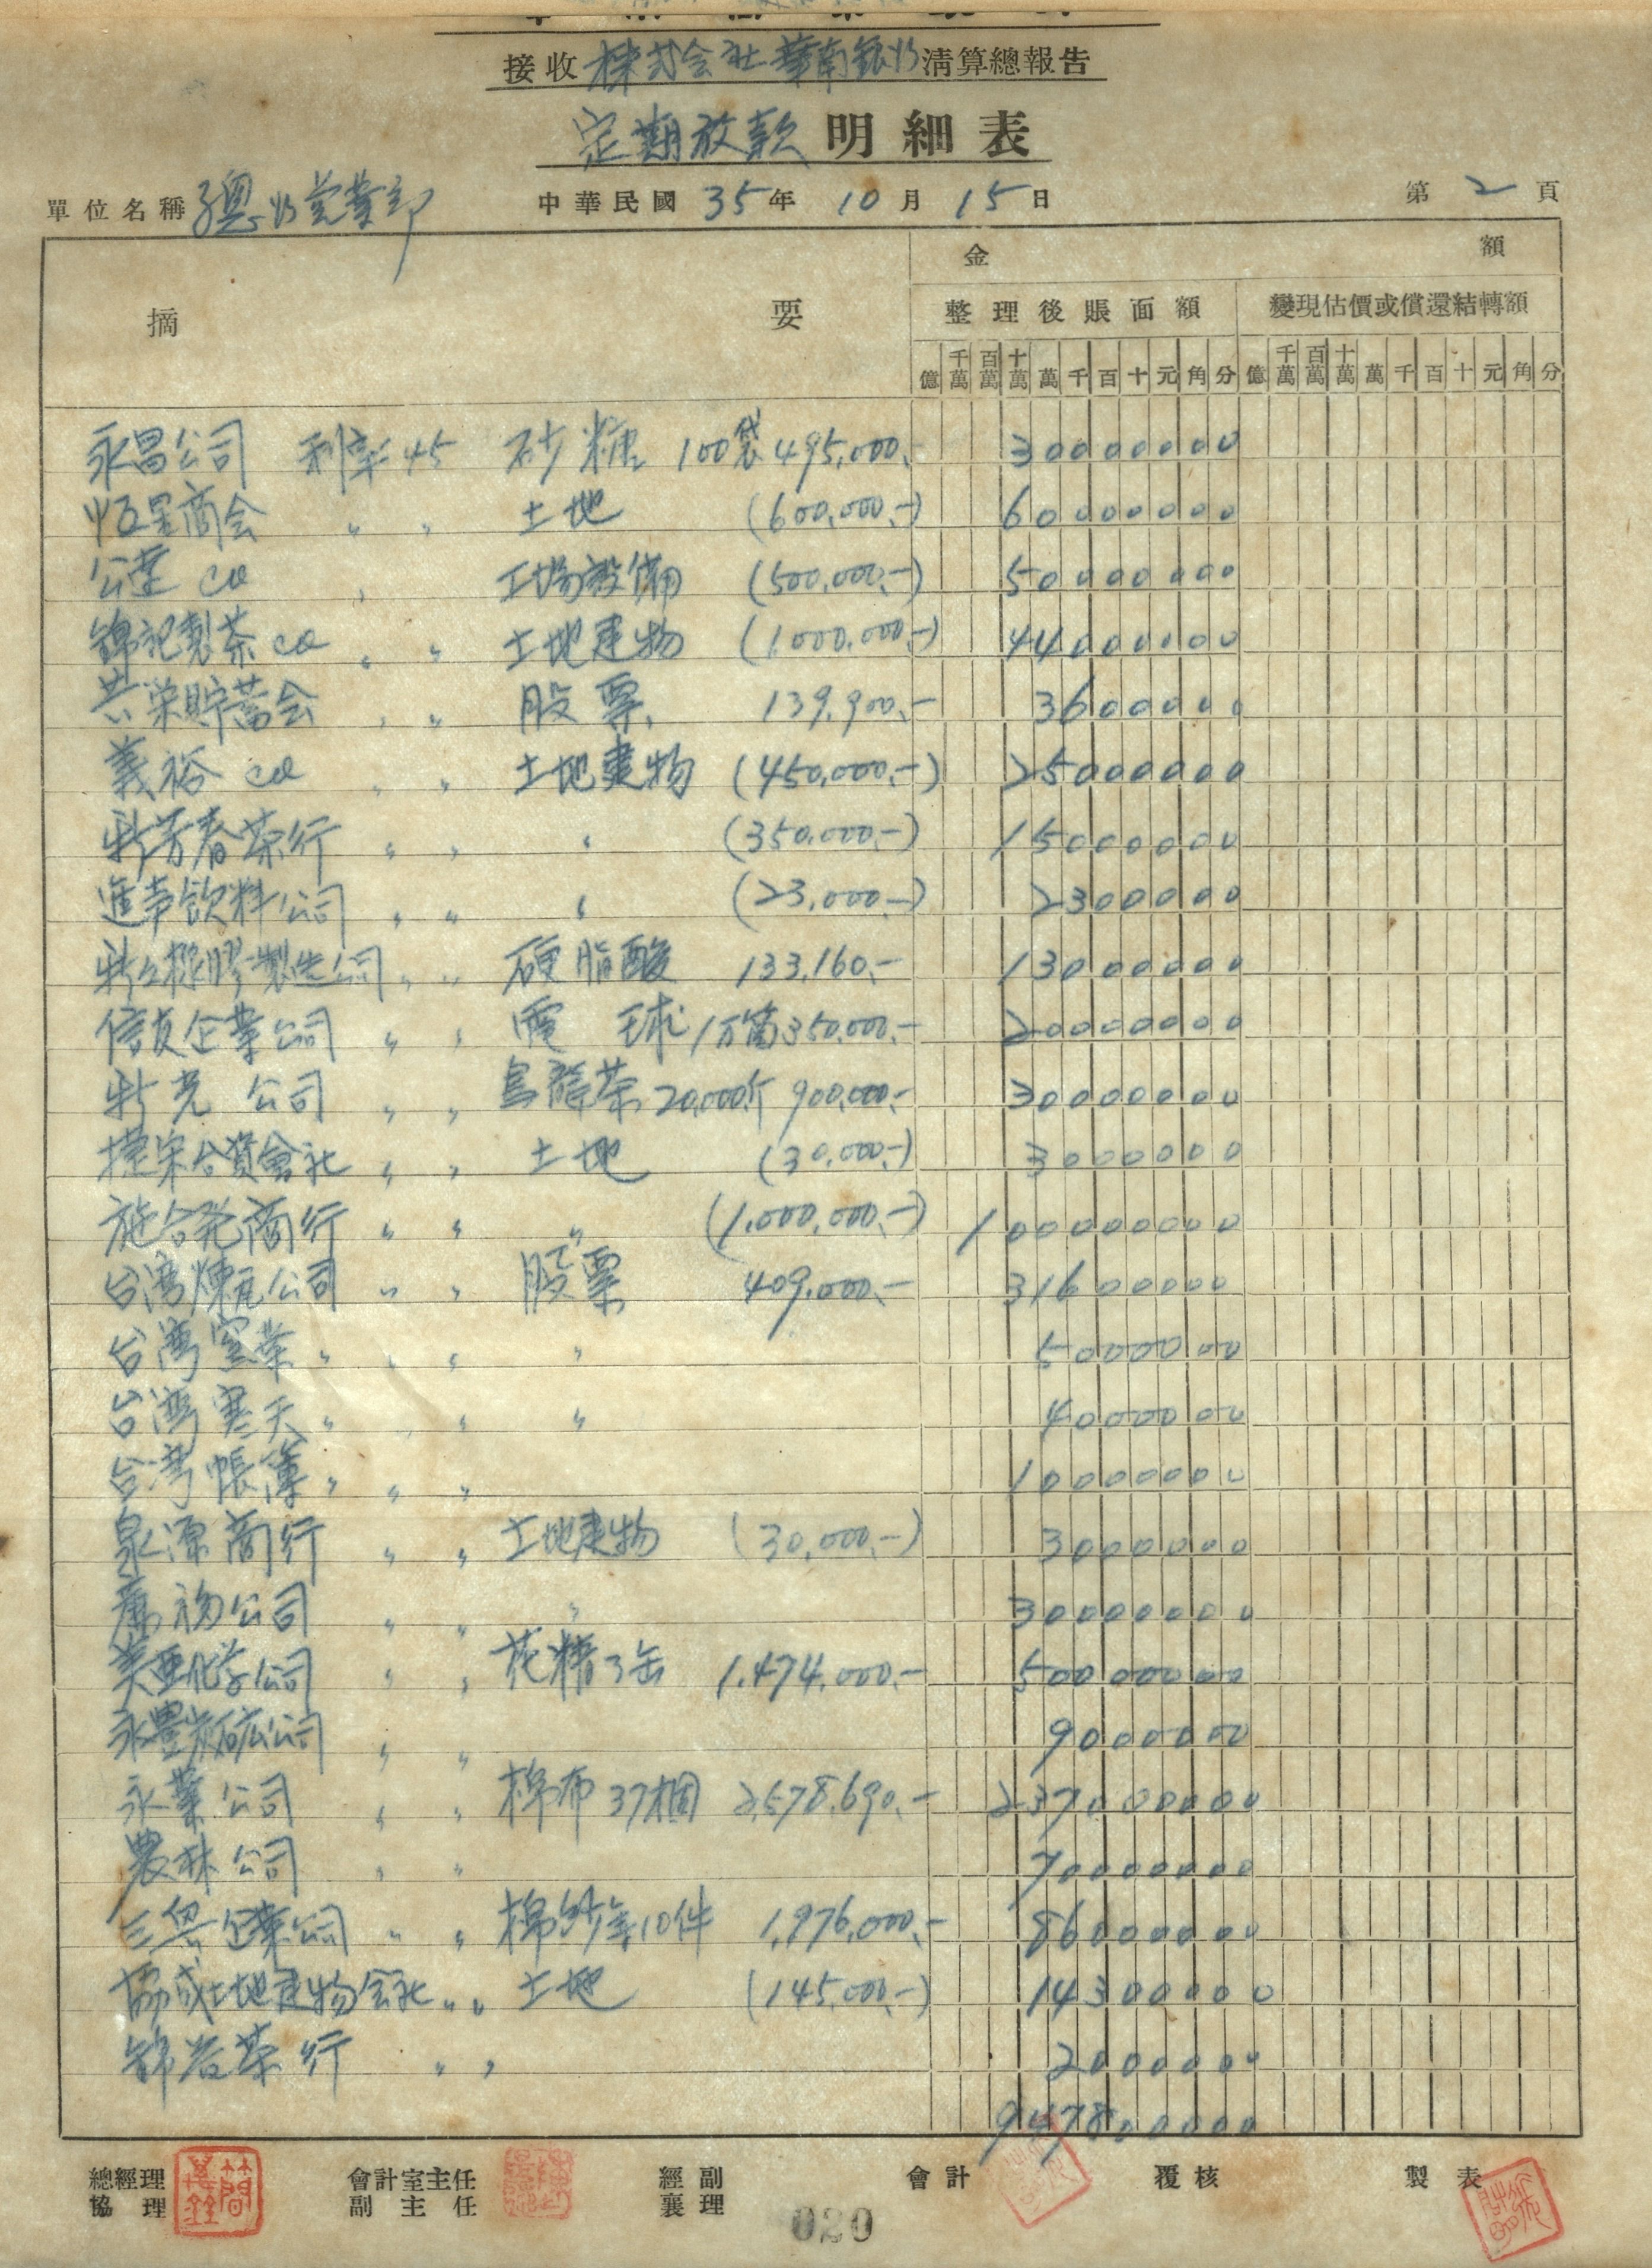 接收 株式会社華南銀行 淸算總報告
定期放款 明細表
單位名稱 總行営業部 中華民國 35年 10月 15日 第 2 頁
金額
摘要 整理後賬面額 變現估價或償還結轉額
億 千萬 百萬 十萬 萬 千 百 十 元 角 分 億 千萬 百萬 十萬 萬 千 百 十 元 角 分
永昌公司 利率 45 砂糖 100袋 495,000.- 30000000
恒星商会 〃 〃 土地 (600,000.-) 60000000
公業 co 〃 工場設備 (500,000.-) 50000000
錦記製茶 co 〃 〃 土地建物 (1,000,000.-) 44000000
共栄貯蓄会 〃 〃 股票 139,900.- 3600000
義裕 co 〃 〃 土地建物 (450,000.-) 25000000
新芳春茶行 〃 〃 〃 (350,000.-) 15000000
進幸飲料公司 〃 〃 〃 (23,000.-) 2300000
新立橡膠製造公司 〃 〃 硬脂酸 133,160.- 13000000
信友企業公司 〃 〃 電球 1万箇 350,000.- 20000000
新光公司 〃 〃 烏龍茶 20,000斤 900,000.- 30000000
捷栄合資會社 〃 〃 土地 (30,000.-) 3000000
施合発商行 〃 〃 〃 (1,000,000.-) 100000000
台湾煉瓦公司 〃 〃 股票 409,000.- 31600000
台湾窯業 〃 〃 〃 〃 5000000
台湾寒天 〃 〃 〃 〃 4000000
台湾帳簿 〃 〃 〃 10000000
泉源商行 〃 〃 土地建物 (30,000.-) 3000000
公司 〃 〃 〃 30000000
美亜化学公司 〃 〃 花精3缶 1,474,000.- 50000000
永豊炭砿公司 〃 〃 9000000
永業公司 〃 〃 棉布 37梱 2,578,690.- 237000000
農林公司 〃 〃 7000000
三興企業公司 〃 〃 棉紗 10件 1,976,000.- 86000000
協成土地建物会社 〃 〃 土地 (145,000.-) 14300000
茶行 〃 〃 2000000
947800000
總經理 會計室主任 經副 會計 覆核 製表
協理 副主任 襄理
020